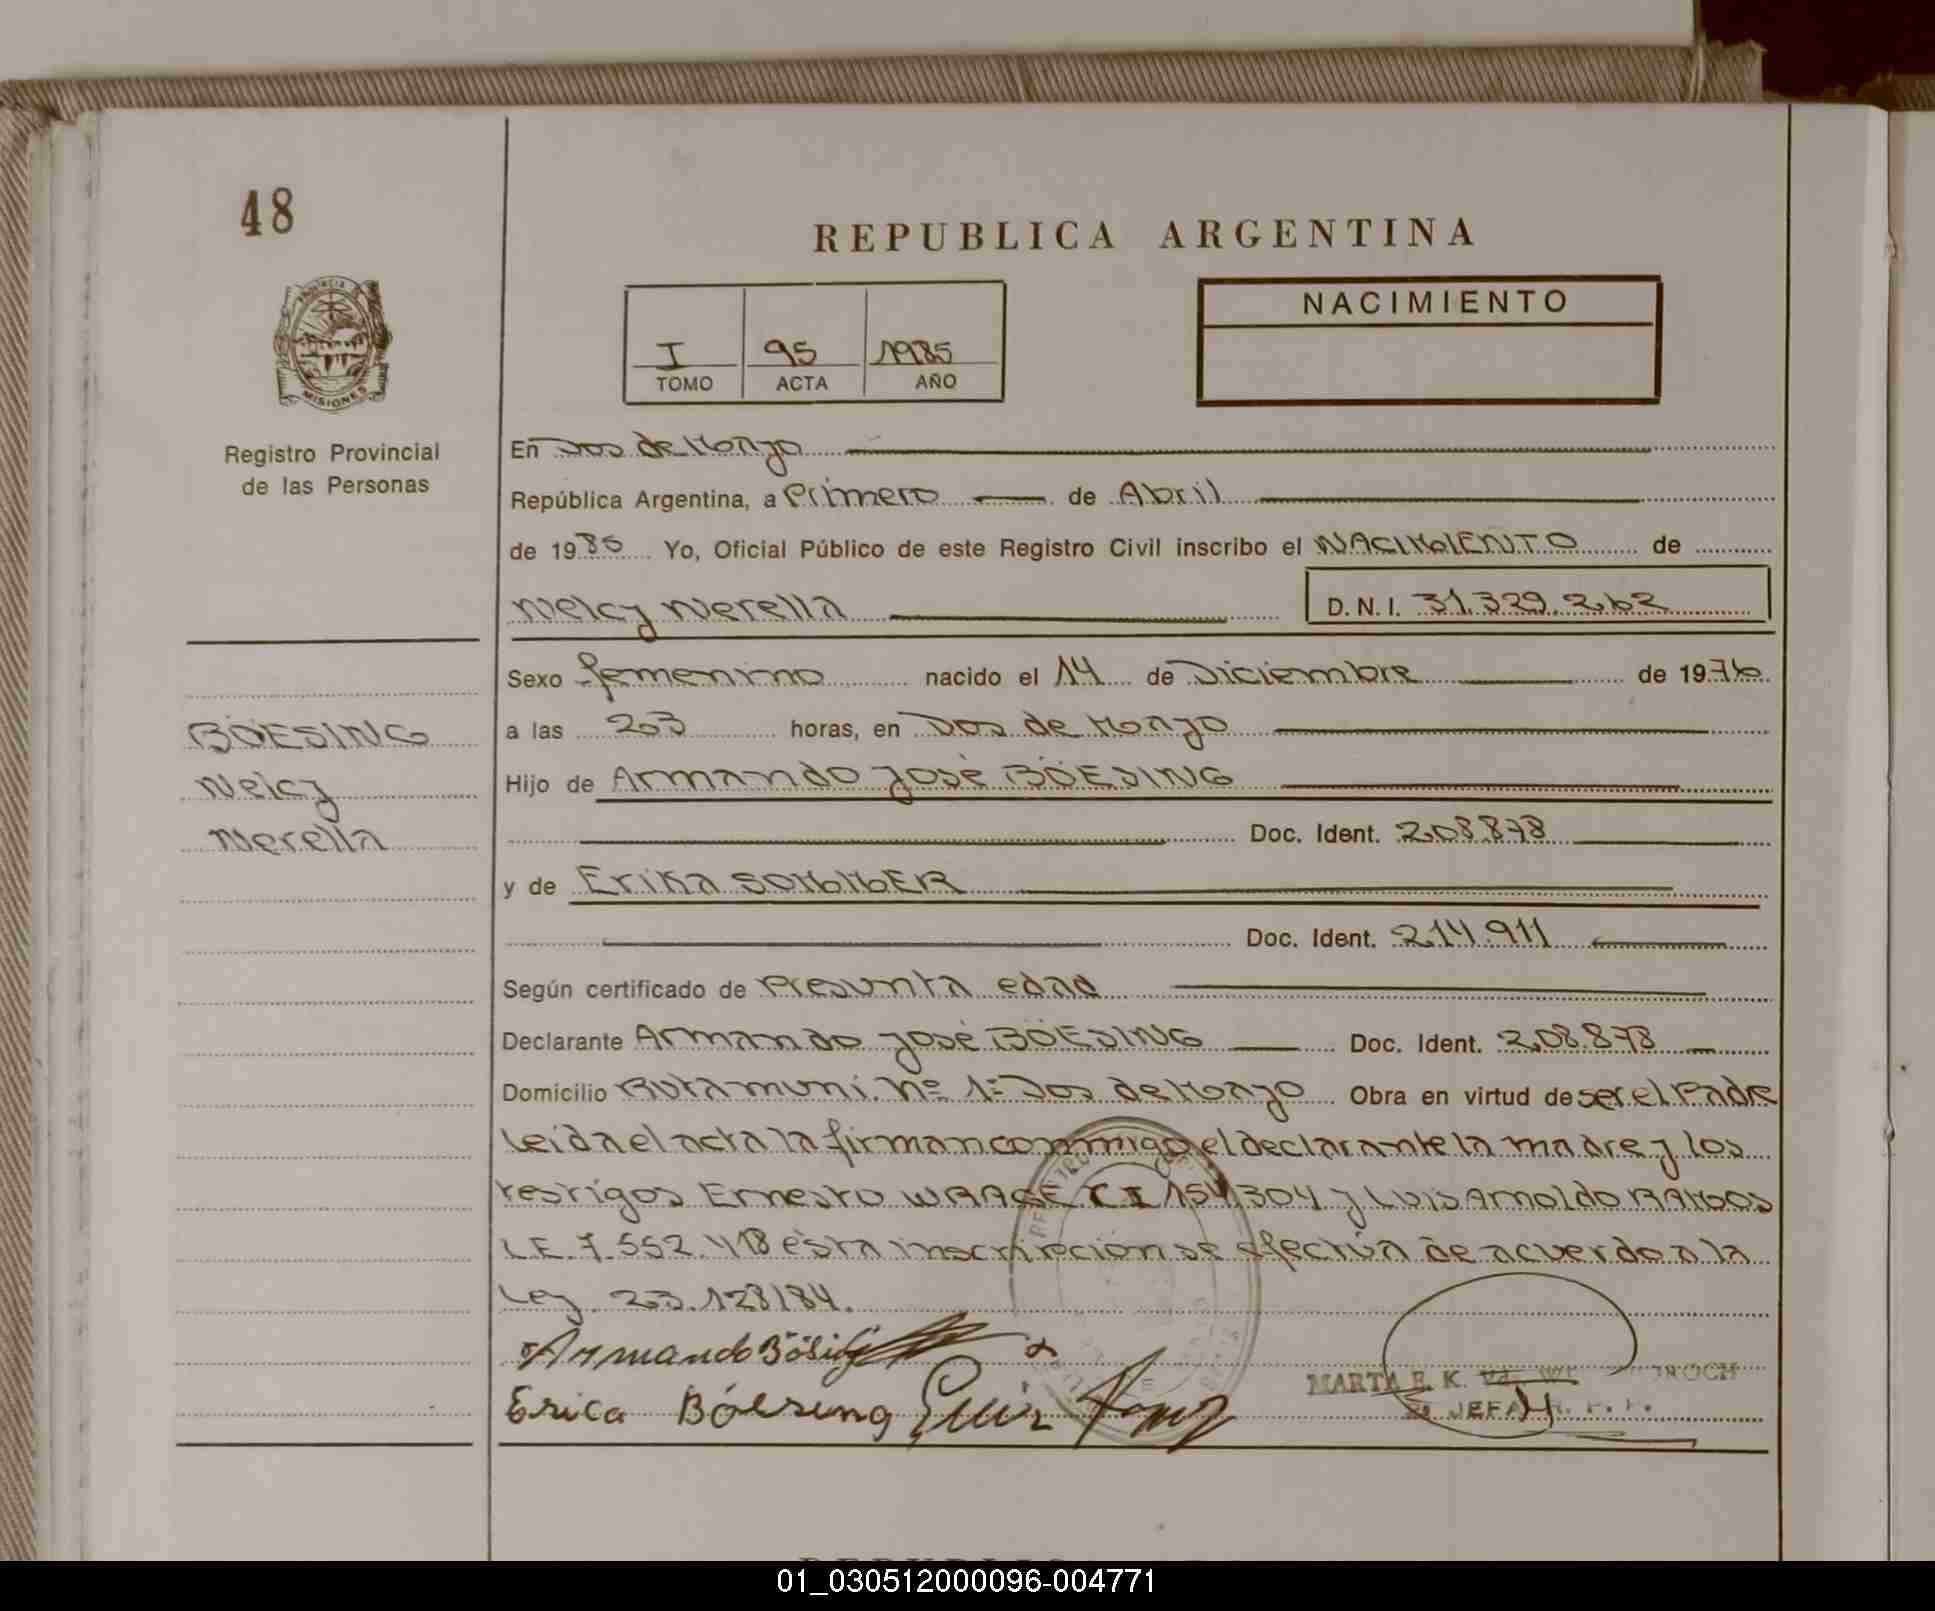 48
REPUBLICA ARGENTINA
I 95 1985
TOMO ACTA AÑO
NACIMIENTO
MISIONES
Registro Provincial
de las Personas
En Dos de Mayo
República Argentina, a Primero de Abril
de 1985 Yo, Oficial Público de este Registro Civil inscribo el NACIMIENTO de
Nelcy Nerella D.N.I. 31.329.262
Sexo femenino nacido el 14 de Diciembre de 1976
a las 23 horas, en Dos de Mayo
BÖESING
Nelcy
Nerella
Hijo de Armando José BÖESING
Doc. Ident. 208.878
y de Erika SOMMER
Doc. Ident. 214.911
Según certificado de Presunta edad
Declarante Armando José BÖESING Doc. Ident. 208.878
Domicilio Ruta muni. Nº 1= Dos de Mayo Obra en virtud de ser el Padre
Leida el acta la firman conmigo el declarante la madre y los
testigos Ernesto WRAGE C I 154.304 y Luis Arnoldo RAMOS
L.E. 7.552.418 ésta inscripción se efectúa de acuerdo a la
Ley 23.128/84.
Armando Bösing
Erica Bóesing Luis Ramoz
MARTA E. K. Vda.
JEFA
REPUBLICA
01_030512000096-004771